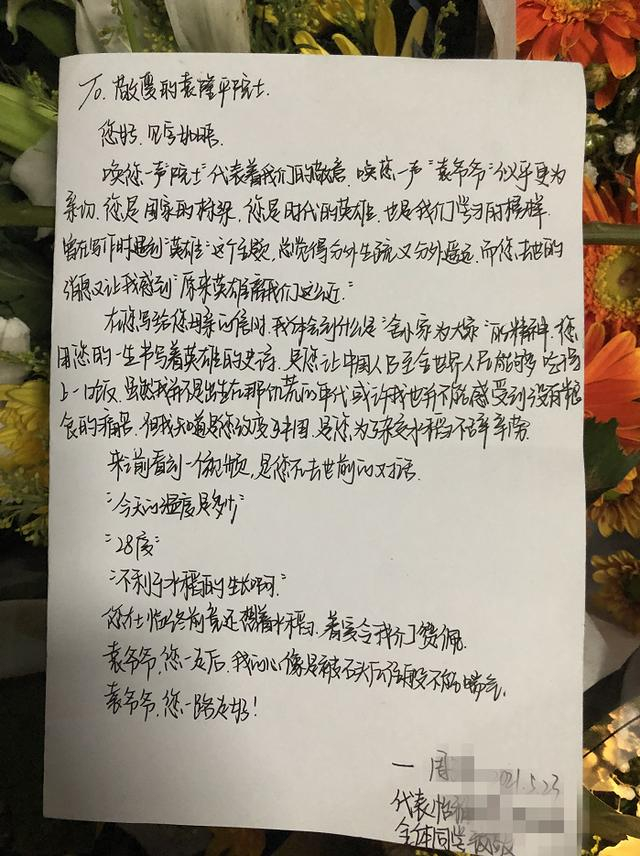 To. 敬爱的袁隆平院士.
您好. 见字如晤.
唤您一声"院士"代表着我们的敬意. 唤您一声"袁爷爷"似乎更为
亲切. 您是国家的栋梁. 您是时代的英雄. 也是我们学习的榜样.
曾在写作时遇到"英雄"这个主题, 总觉得分外生疏又分外遥远. 而您去世的
消息又让我感到"原来英雄离我们这么近."
在您写给您母亲的信时. 我体会到什么是"舍小家为大家"的精神. 您
用您的一生书写着英雄的史诗. 是您让中国人民至全世界人民能够吃得
上一口饭. 虽然我并不是出生在那饥荒的年代 或许我也并不能感受到没有粮
食的痛苦. 但我知道是您改变了中国. 是您为了杂交水稻不辞辛劳.
来之前看到一个视频, 是您在去世前的对话.
"今天的温度是多少"
"28度"
"不利于水稻的生长啊."
您在临终前竟还想着水稻. 着实令我们赞佩.
袁爷爷, 您一走后. 我的心像是被石头压住般不能喘气.
袁爷爷, 您一路走好!
一 周 2021.5.23
代表
全体同学